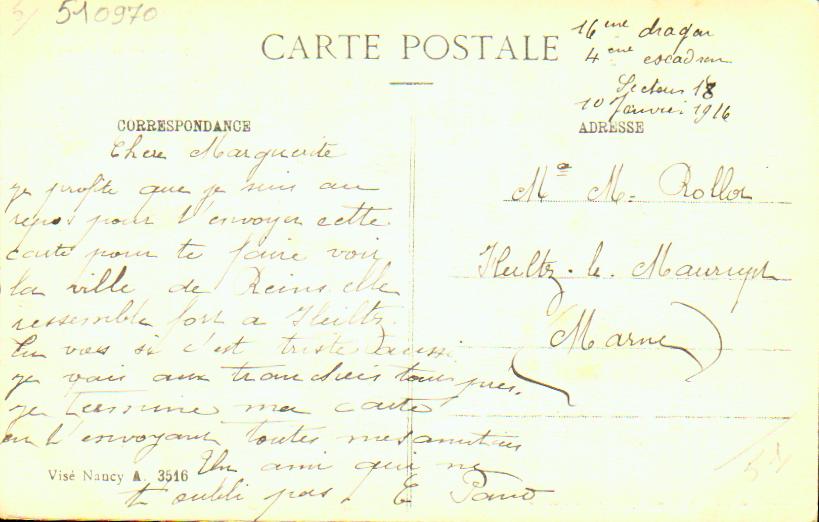 510970
CARTE POSTALE
16eme dragon
4eme escadron
Secteur 18
10 Janvier 1916
CORRESPONDANCE
ADRESSE
Chere Marguerite
je profite que je suis au
repos pour t'envoyer cette
carte pour te faire voir
la ville de Reims elle
ressemble fort a Heiltz.
tu vois si c'est triste aussi
je vais aux tranchées tous pres.
je termine ma carte
en t'envoyant toutes mes amitiés
Un ami qui ne
t'oubli pas. E
Melle M. Rollot
Heiltz-le-Maurupt
(Marne)
Visé Nancy A. 3516